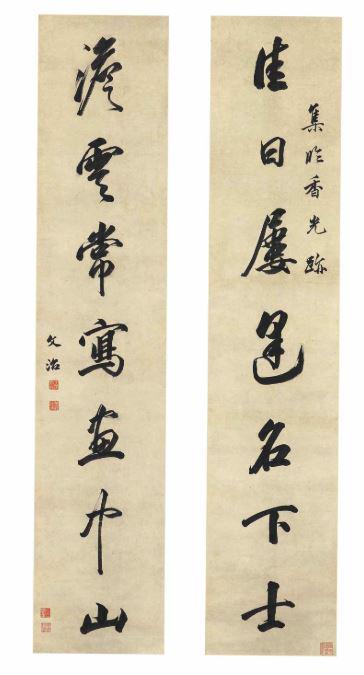 集臨香光跡
佳日屢名下士
淡雲常寫畫中山
文治